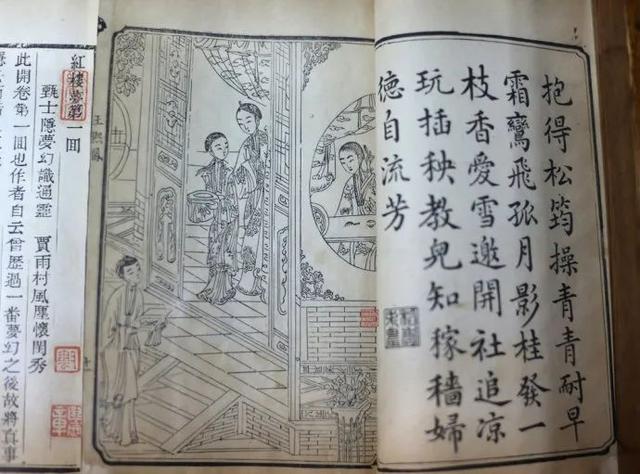 抱得松筠操青青耐早
霜鸞飛孤月影桂發一
枝香愛雪邀開社追涼
玩插秧教兒知稼穡婦
徳自流芳
王熙鳳
紅樓夢第一囘
甄士隱夢幻識通靈 賈雨村風塵懷閨秀
此開卷第一囘也作者自云曾歷過一番夢幻之後故將真事